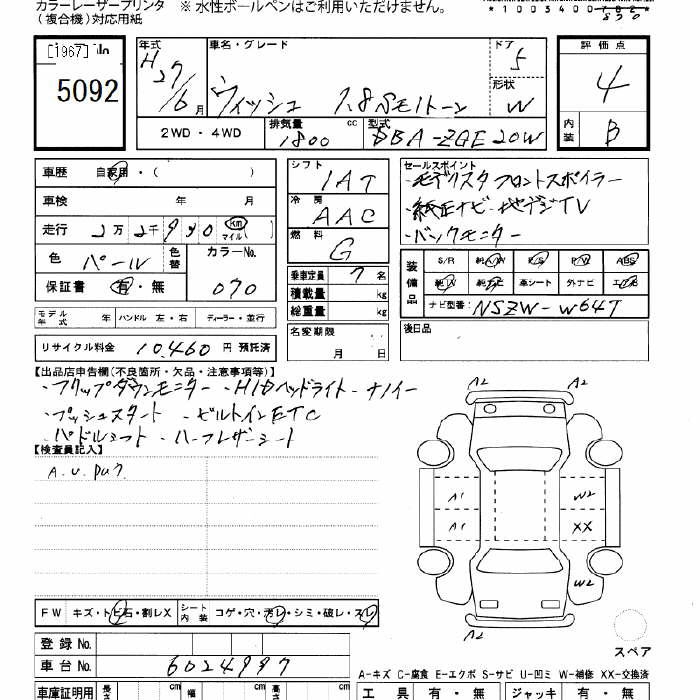 カラーレーザープリンタ ※ 水性ボールペンはご利用いただけません。
(複合機)対応用紙
[1967]
5092
年式 H27/6月
車名・グレード ウィッシュ 1.8Sモノトーン
ドア 5
形状 W
評価点 4
内装 B
2WD・4WD
排気量 1800 cc
型式 DBA-ZGE20W
車歴 自家用・( )
車検 年 月
走行 2万2千930 km マイル
色 パール 色替
カラーNo. 070
保証書 有・無
シフト IAT
冷房 AAC
燃料 G
乗車定員 7名
積載量 kg
総重量 kg
セールスポイント
・モデリスタフロントスポイラー
・純正ナビ・地デジTV
・バックモニター
装備品 S/R 純A/W P/S P/W ABS
純ナビ 革シート 外ナビ エアB
ナビ型番: NSZW-W64T
モデル年式 年 ハンドル 左・右 ディーラー・並行
リサイクル料金 10,460 円 預託済
名変期限 月 日
後日品
【出品店申告欄(不良箇所・欠品・注意事項等)】
・フリップダウンモニター・HIDヘッドライト・ナノイー
・プッシュスタート ・ビルトインETC
・パドルシフト ・ハーフレザーシート
【検査員記入】
A.U.
A2 A2
A1 W2
A1 XX
W2
A2
スペア
FW キズ・トビ石・割レX
シート内装 コゲ・穴・汚レ・シミ・破レ・スレ
登録No.
車台No. 6024997
A-キズ C-腐食 E-エクボ S-サビ U-凹ミ W-補修 XX-交換済
車庫証明用 長さ cm 幅 cm cm
工具 有・無 ジャッキ 有・無